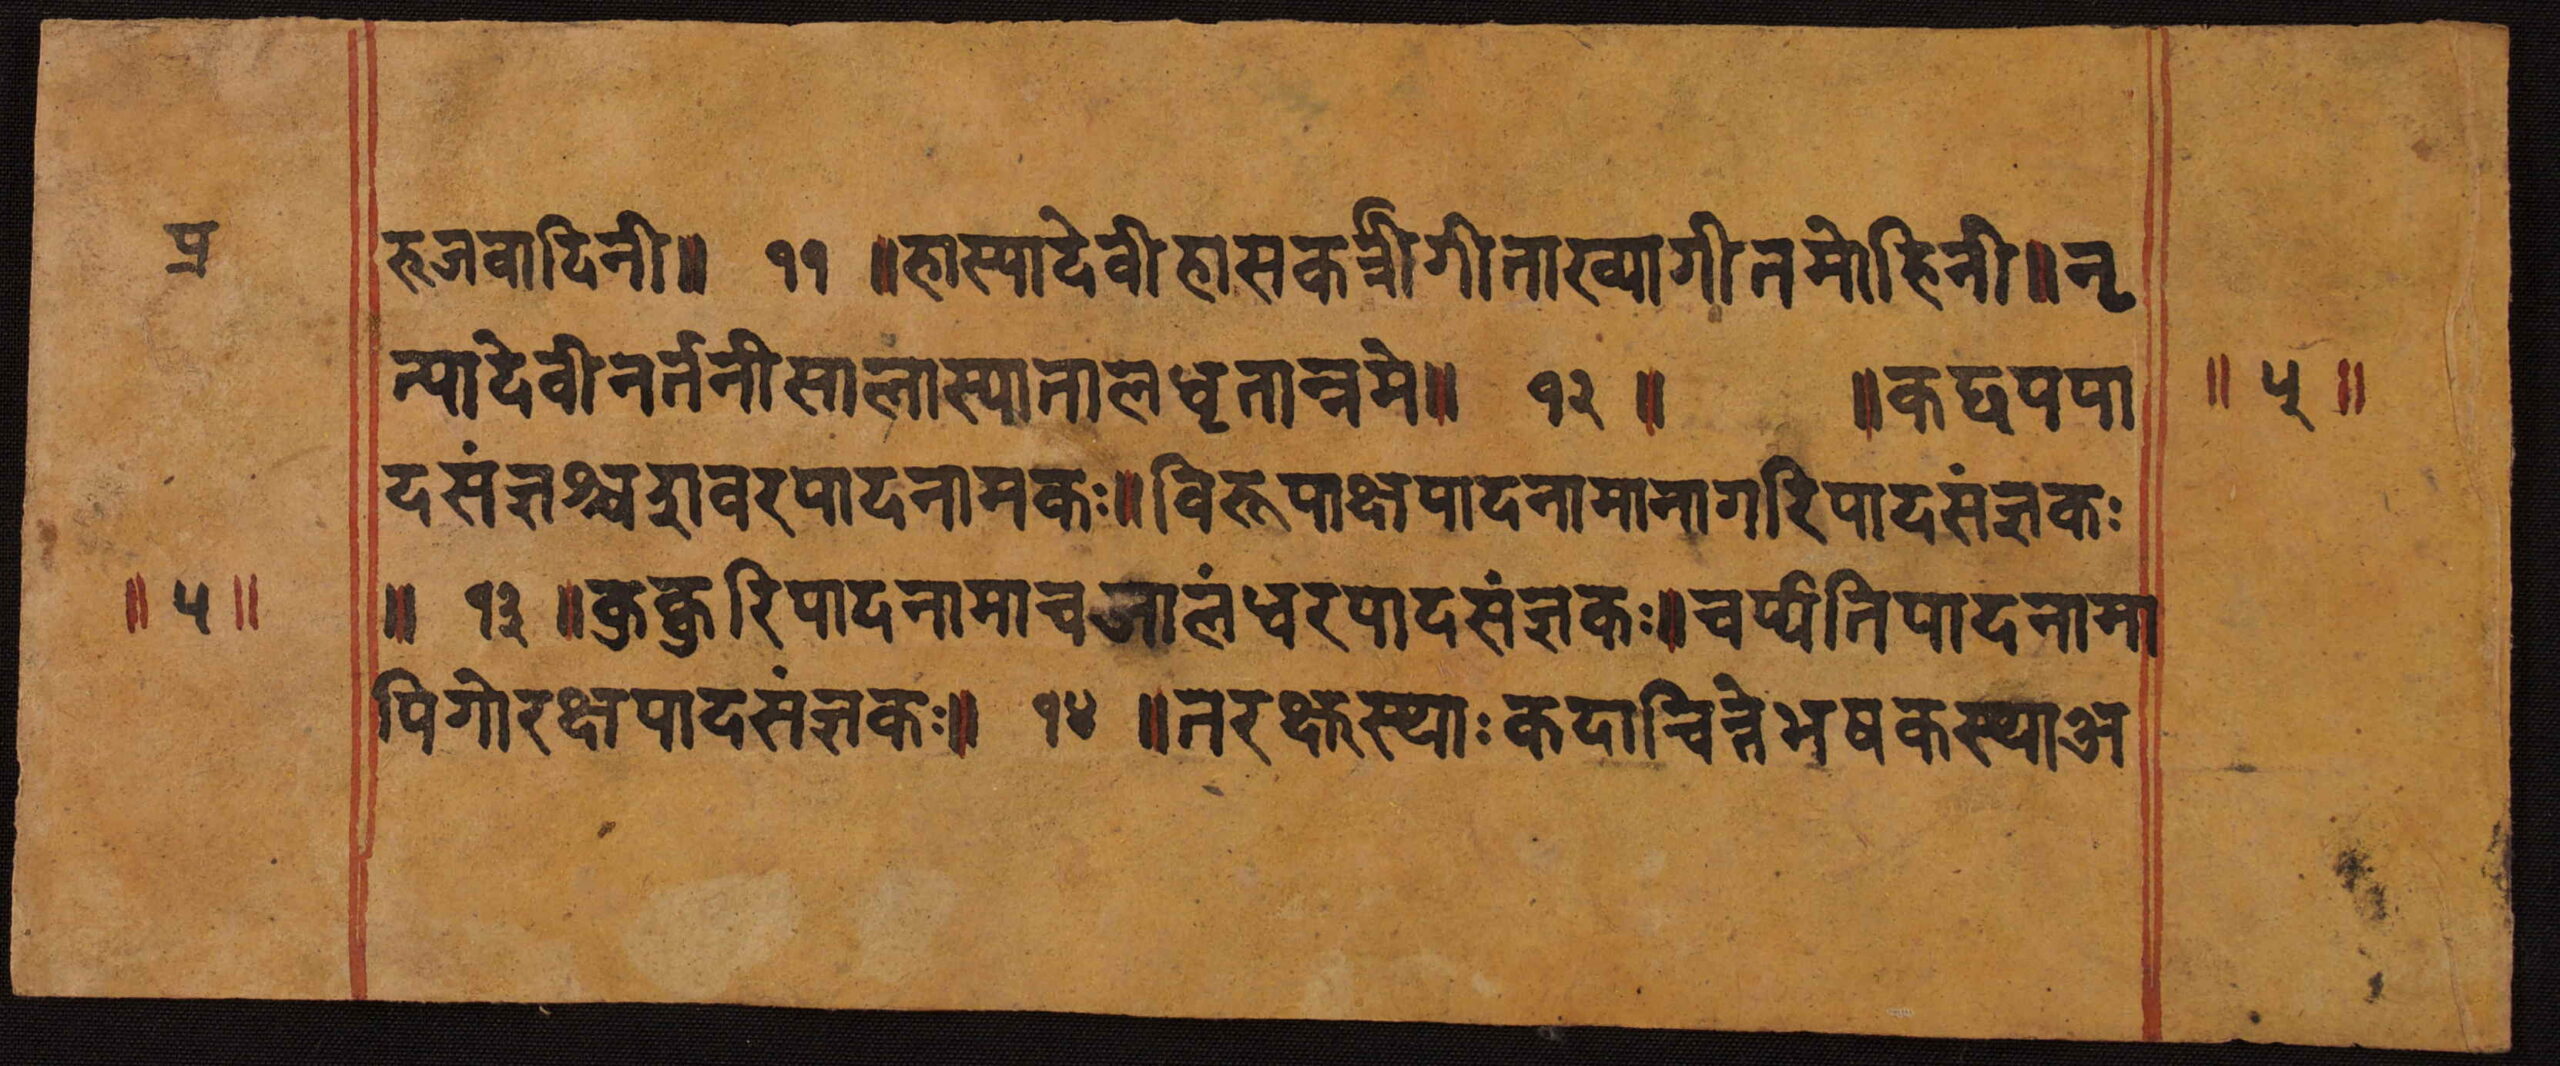 प्र
रुजवादिनी॥ ११ ॥हास्यादेवीहासकर्त्रीगीताख्यागीतमोहिनी॥नृ
त्यादेवीनर्तनीसालास्यातालधृतान्नमे॥ १२ ॥ ॥कछपपा ॥ ५ ॥
दसंज्ञश्चशवरपादनामकः॥विरूपाक्षपादनामानागरिपादसंज्ञकः
॥ ५ ॥ ॥ १३ ॥कुकुरिपादनामाचजालंधरपादसंज्ञकः॥चर्प्पतिपादनामा
पिगोरक्षपादसंज्ञकः॥ १४ ॥तरक्षस्थाःकदाचिन्नेभषकस्थाअ